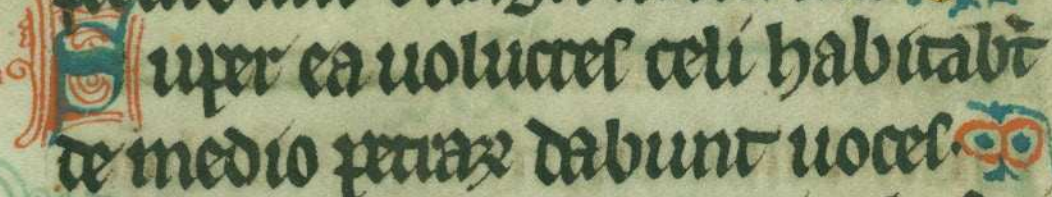 Super ea uolucres celi habitabt̄
de medio petraꝝ dabunt uoces.